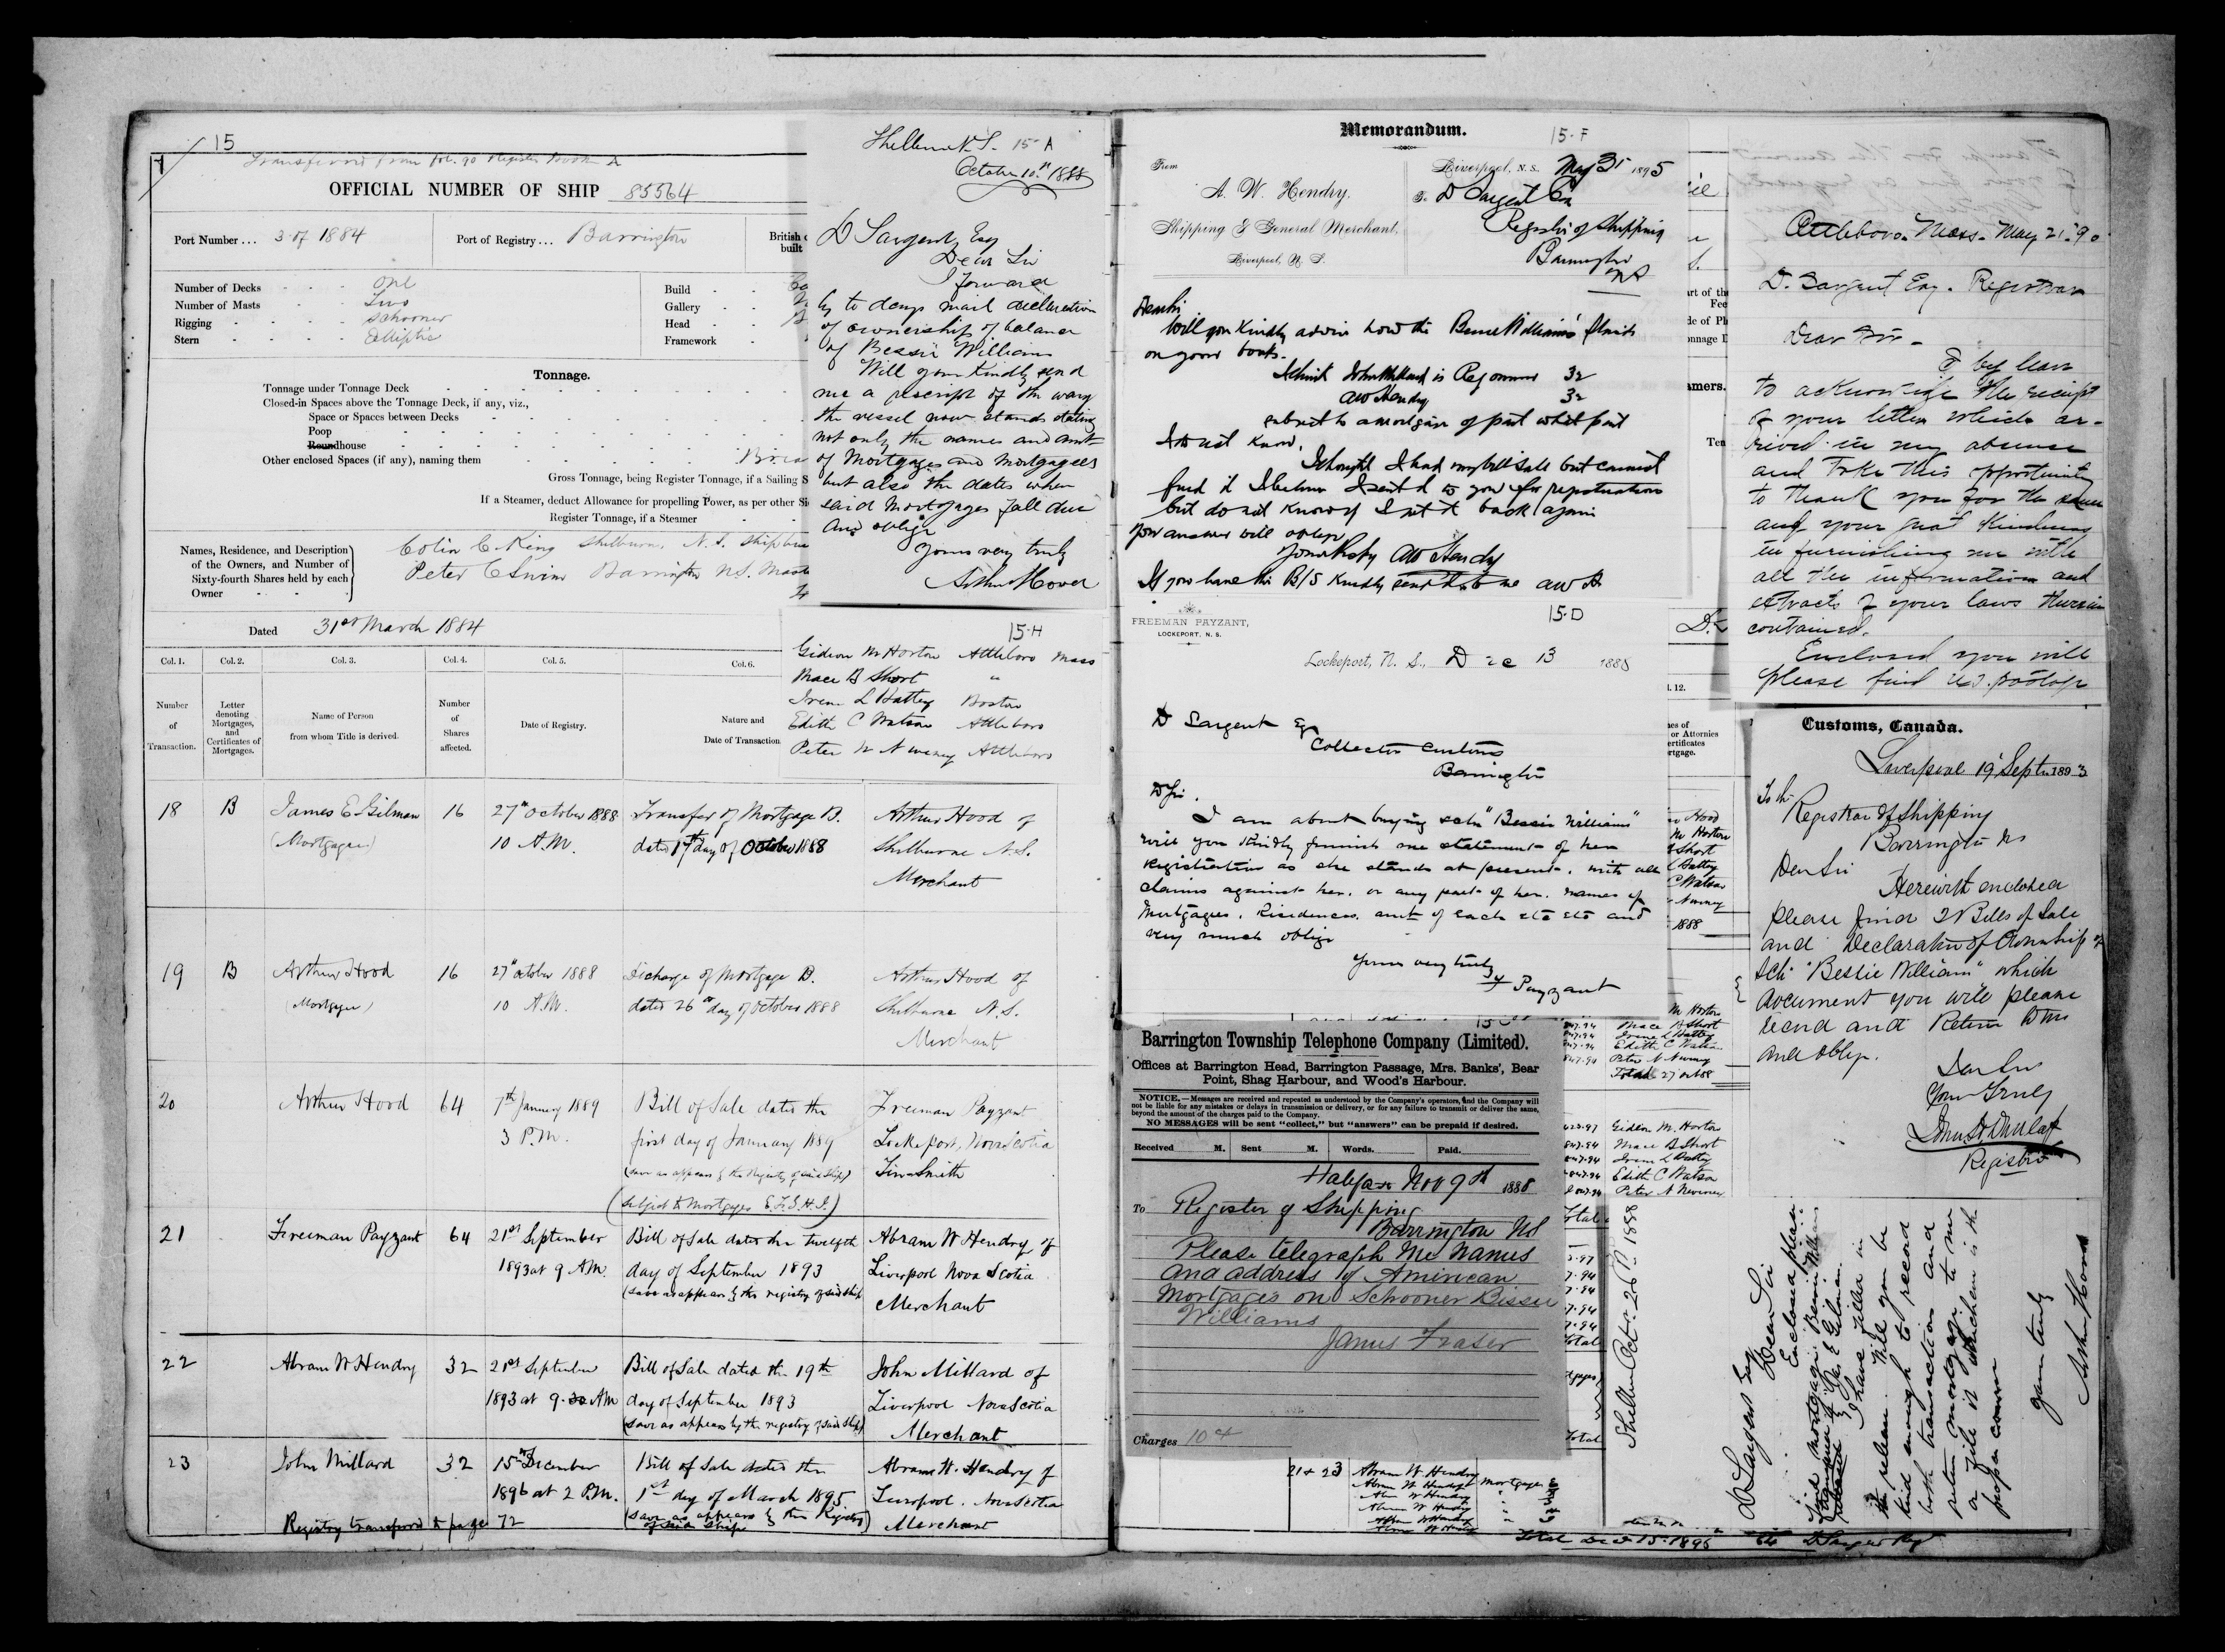 15
Transferred from fol. 90 Register Book A
OFFICIAL NUMBER OF SHIP 85564
Port Number... 3 of 1884
Port of Registry... Barrington
British
built
Number of Decks - - - One
Number of Masts - - - Two
Rigging - - - Schooner
Stern - - - Elliptic
Build - -
Gallery - -
Head - -
Framework -
Tonnage.
Tonnage under Tonnage Deck
Closed-in Spaces above the Tonnage Deck, if any, viz.,
Space or Spaces between Decks
Poop
Roundhouse
Other enclosed Spaces (if any), naming them
Gross Tonnage, being Register Tonnage, if a Sailing S
If a Steamer, deduct Allowance for propelling Power, as per other Si
Register Tonnage, if a Steamer
Names, Residence, and Description
of the Owners, and Number of
Sixty-fourth Shares held by each
Owner
Colin C King Shelburne, N.S.
Peter C Swim Barrington N.S.
Dated 31st March 1884
Col. 1. Col. 2. Col. 3. Col. 4. Col. 5. Col. 6.
Number
of
Transaction.
Letter
denoting
Mortgages,
and
Certificates of
Mortgages.
Name of Person
from whom Title is derived.
Number
of
Shares
affected.
Date of Registry.
Nature and
Date of Transaction
18 B James E Gilman 16 27th October 1888 Transfer of Mortgage B. Arthur Hood of
(Mortgagee) 10 A.M. dated 17th day of October 1888 Shelburne N.S.
Merchant
19 B Arthur Hood 16 27th October 1888 Discharge of Mortgage B. Arthur Hood of
(Mortgagee) 10 A.M. dated 26th day of October 1888 Shelburne N.S.
Merchant
20 Arthur Hood 64 7th January 1889 Bill of Sale dated the Freeman Payzant
3 P.M. first day of January 1889 Lockeport, Nova Scotia
(save as appears by the Registry of said Ship) Tinsmith
(Subject to Mortgages E.F.G.H.I.)
21 Freeman Payzant 64 21st September Bill of Sale dated the twelfth Abram W Hendry of
1893 at 9 A.M. day of September 1893 Liverpool Nova Scotia
(save as appears by the registry of said ship Merchant
22 Abram W Hendry 32 21st September Bill of Sale dated the 19th John Millard of
1893 at 9.30 AM day of September 1893 Liverpool Nova Scotia
(save as appears by the registry of said ship) Merchant
23 John Millard 32 15th December Bill of Sale dated the Abram W. Hendry of
1896 at 2 P.M. 1st day of March 1895 Liverpool. Nova Scotia
(save as appears by the Registry of said ship) Merchant
Registry transferred to page 72
Shelburne N.S. 15-A
October 10th 1888
D Sargent Esq
Dear Sir
I forward
by to days mail declaration
of ownership of balance
of Bessie Williams
Will you kindly send
me a prescript of the way
the vessel now stands stating
not only the names and amt
of Mortgages and Mortgagees
but also the dates when
said Mortgages fall due
And oblige
Yours very truly
Arthur Hood
15-H
Gideon M Horton Attleboro Mass
Mace B Short "
Irene L Battey Boston
Edith C Watson Attleboro
Peter N Attleboro
Memorandum.
15-F
From
A. W. Hendry,
Shipping & General Merchant,
Liverpool, N. S.
Liverpool, N.S. May 31 1895
To D Sargent Esq
Registrar of Shipping
Barrington
NS
Dear Sir
Will you kindly advise how the Bessie Williams stands
on your books.
I think John Millard is Reg owner 32
AW Hendry 32
subject to a mortgage of part what part
I do not know.
I thought I had my bill sale but cannot
find it I believe I sent it to you for registration
but do not know if I sent it back again
Your answer will oblige
Yours Resply AW Hendry
If you have this B/S kindly send it to me AWH
15-D
FREEMAN PAYZANT,
LOCKEPORT, N. S.
Lockeport, N. S., Dec 13 1888
D Sargent Esq
Collector Customs
Barrington
D Sir.
I am about buying sch "Bessie Williams"
will you kindly furnish me statement of her
registration as she stands at present, with all
claims against her, or any part of her. names of
Mortgagees, Residences, amt of each etc etc and
very much oblige
Yours very truly
F Payzant
Barrington Township Telephone Company (Limited).
Offices at Barrington Head, Barrington Passage, Mrs. Banks', Bear
Point, Shag Harbour, and Wood's Harbour.
NOTICE.—Messages are received and repeated as understood by the Company's operators, and the Company will
not be liable for any mistakes or delays in transmission or delivery, or for any failure to transmit or deliver the same,
beyond the amount of the charges paid to the Company.
NO MESSAGES will be sent "collect," but "answers" can be prepaid if desired.
Received M. Sent M. Words. Paid.
Halifax Nov 9th 1888
To Register of Shipping
Barrington NS
Please telegraph me names
and address of American
Mortgages on Schooner Bissie
Williams
James Fraser
Charges 10
21 + 23 Abram W. Hendry
Abram W Hendry
Total Dec 15. 1896 64 D Sargent Reg
Attleboro. Mass. May 21. 90
D. Sargent Esq. Registrar
Dear Sir -
I beg leave
to acknowledge the receipt
of your letter which ar-
rived in my absence
and take this opportunity
to thank you for the same
and your great kindness
in furnishing me with
all the information and
extracts of your laws therein
contained.
Enclosed you will
please find U.S. postage
Customs, Canada.
Liverpool 19 Septr 1893
To the
Registrar of Shipping
Barrington NS
Dear Sir
Herewith enclosed
please find 2 Bills of Sale
and Declaration of Ownership of
Sch "Bessie William" which
document you will please
record and Return to me
and oblige.
Dear Sir
Yours Truly
Registrar
Gideon M. Horton
Mace B Short
Irene L Battey
Edith C Watson
Shelburne Octr 26th 1888
D Sargent Esq
Dear Sir
Enclosed please
find mortgage Bessie Williams
I have filled in
the release. Will you be
kind enough to record
both transaction and
return mortgage to me
or file it whichever is the
proper course
Yours truly
Arthur Hood